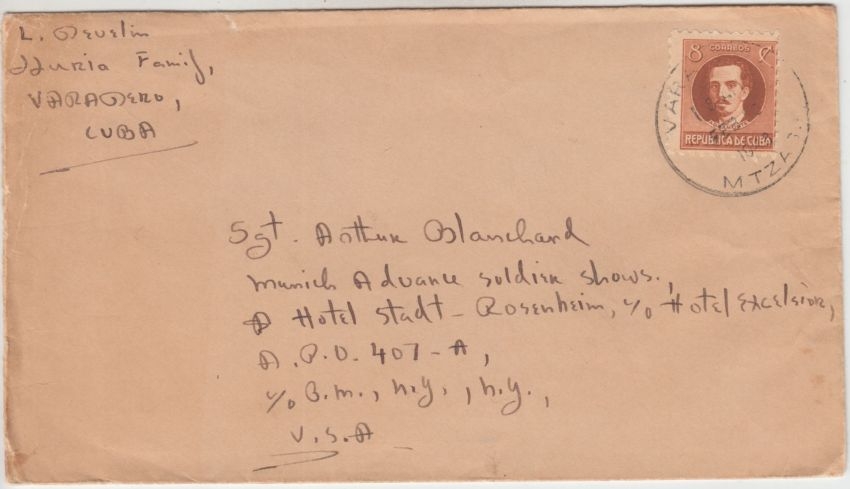 L. Develin
Family,
VARADERO,
CUBA
8 CORREOS ¢
REPUBLICA DE CUBA
VARA
MTZAS
Sgt. Arthur Blanchard
Munich Advance soldier shows.,
Hotel Stadt-Rosenheim, c/o Hotel Excelsior,
A.P.O. 407-A,
c/o P.M., N.Y., N.Y.,
U.S.A